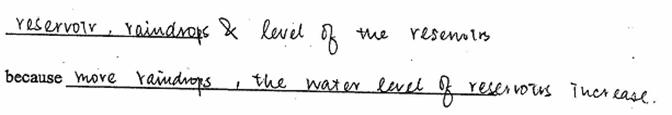 reservoir, raindrops & level of the reservoirs
because more raindrops, the water level of reservoirs increase.